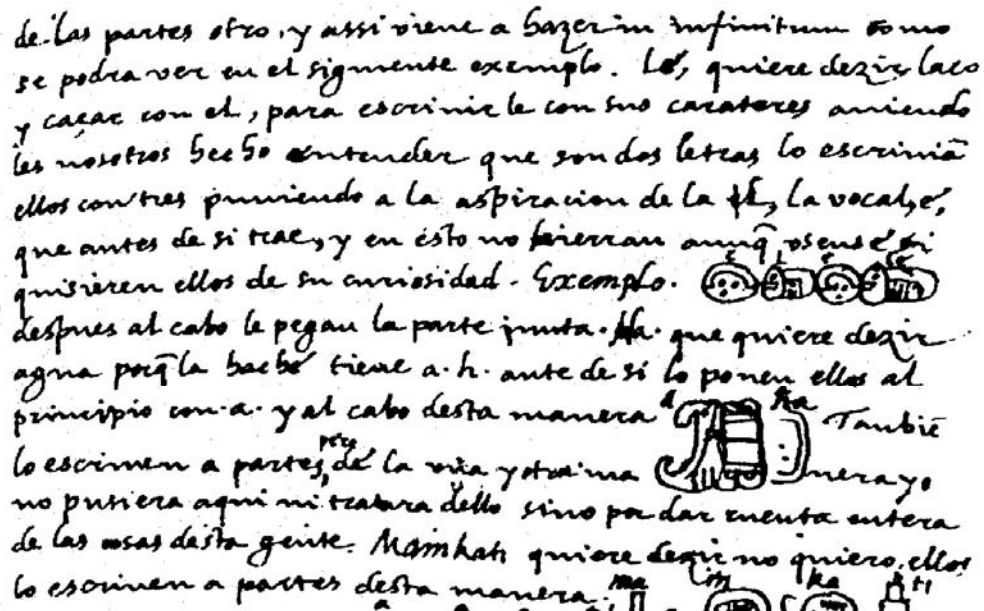 de las partes otro, y assi viene a hazer in infinitum como
se podra ver en el siguiente exemplo. Lé, quiere dezir laço
y caçar con el, para escrivirle con sus carateres aviendo
les nosotros hecho entender que son dos letras lo escrivian
ellos con tres puniendo a la aspiracion de la l, la vocal, é,
que antes de si trae, y en esto no hierran aunq̃ usense si
quisieren ellos de su curiosidad. Exemplo. e l e le
despues al cabo le pegan la parte junta. Ha. que quiere dezir
agua porq̃ la hache tiene a. h. ante de si lo ponen ellos al
principio con .a. y al cabo desta manera a ha Tambiẽ
lo escriven a partes, pero de la una y otra ma nera yo
no pusiera aqui ni tratara dello sino por dar cuenta entera
de las cosas desta gente. Mainkati quiere dezir no quiero, ellos
lo escriven a partes desta manera: ma in ka ti
a